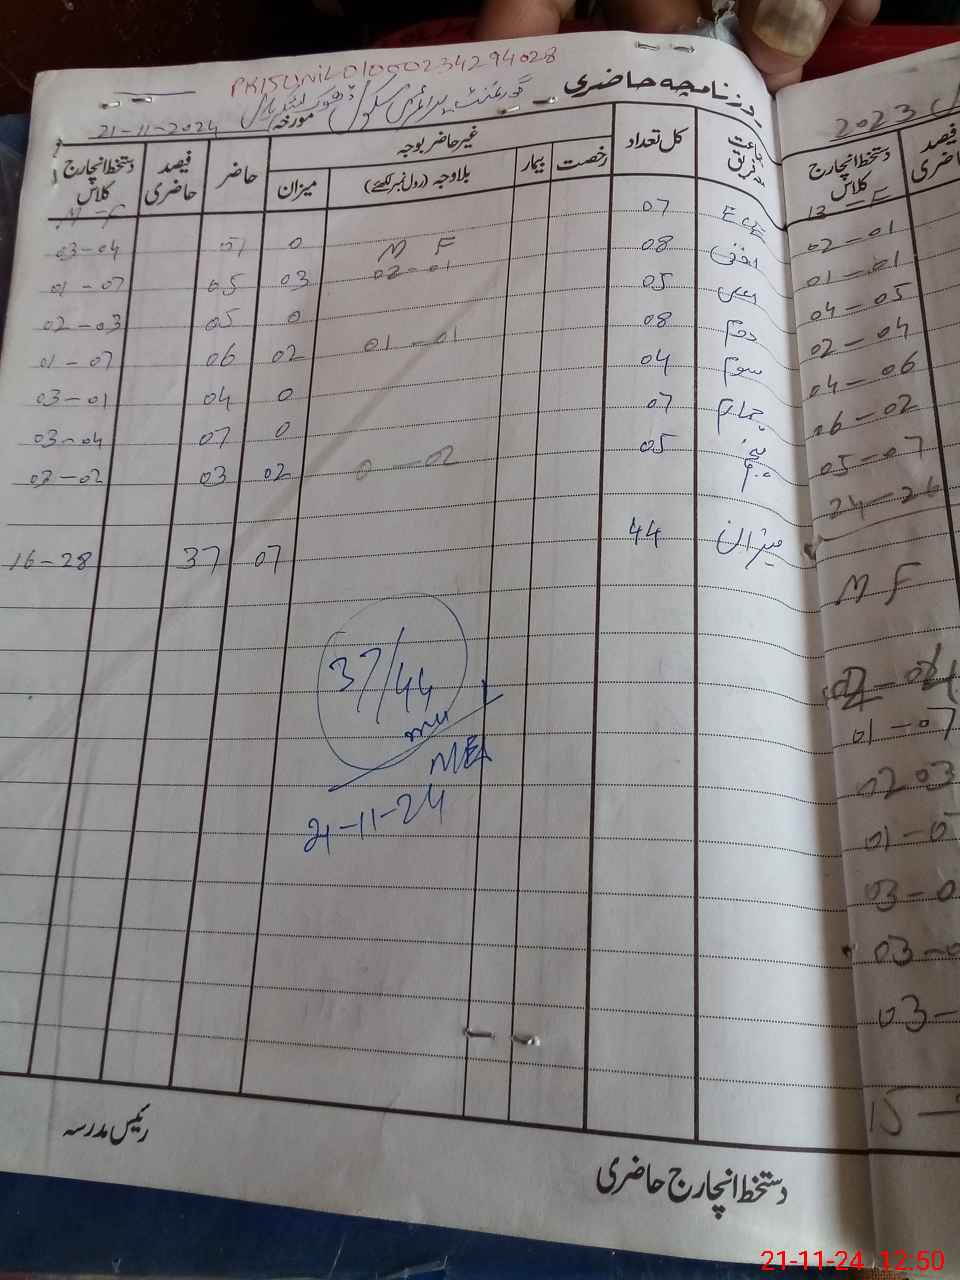 روزنامچہ حاضری
گورنمنٹ پرائمری سکول ڈھوک
مورخہ 21-11-2024
کل تعداد غیر حاضر بوجہ حاضر فیصد حاضری دستخط انچارج کلاس
رخصت بیمار بلاوجہ (رول نمبر لکھیے) میزان
M - F
ECE 07 0 07 03-04
M F
08 02-01 03 05 01-07
05 0 05 02-03
دوم 08 01-01 02 06 01-07
سوم 04 0 04 03-01
07 0 07 03-04
05 0-02 02 03 03-02
میزان 44 07 37 16-28
37/44
MEA
21-11-24
دستخط انچارج حاضری
رئیس مدرسہ
2023
فیصد
دستخط انچارج کلاس
02-01
01-01
04-05
02-04
04-06
16-02
05-07
24-26
M F
01-07
02 03
01-0
03-0
03-0
03-
15-
21-11-24 12:50